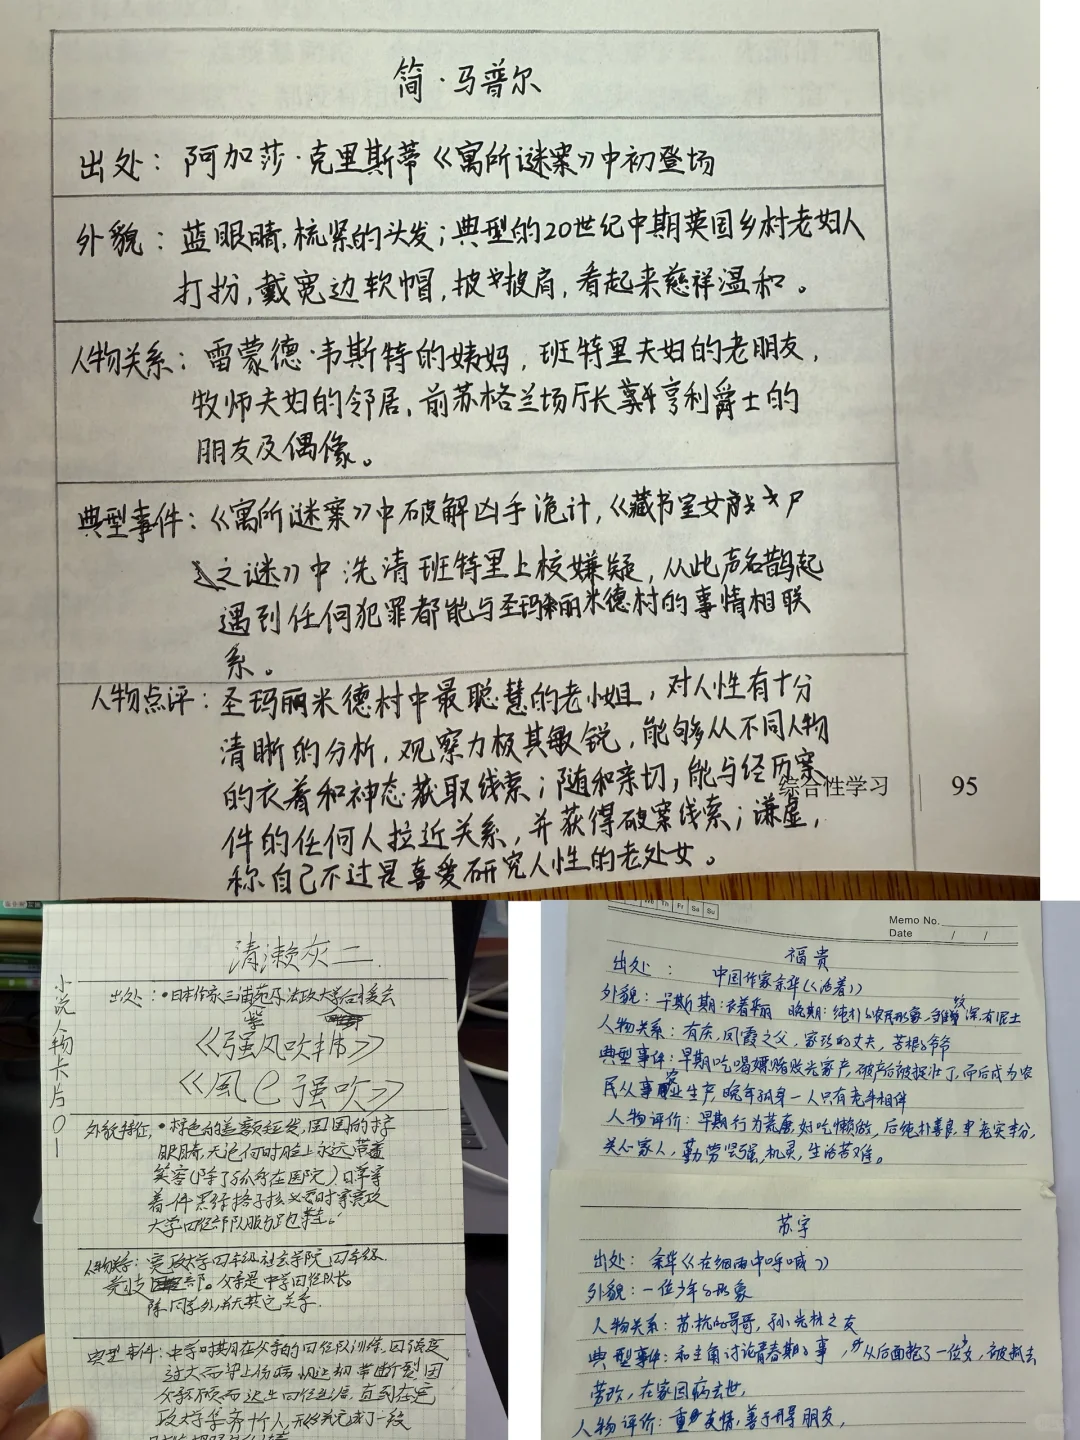 简·马普尔
出处：阿加莎·克里斯蒂《寓所谜案》中初登场
外貌：蓝眼睛，梳紧的头发；典型的20世纪中期英国乡村老妇人
打扮，戴宽边软帽，披披肩，看起来慈祥温和。
人物关系：雷蒙德·韦斯特的姨妈，班特里夫妇的老朋友，
牧师夫妇的邻居，前苏格兰场厅长亨利爵士的
朋友及偶像。
典型事件：《寓所谜案》中破解凶手诡计，《藏书室女尸
之谜》中洗清班特里上校嫌疑，从此声名鹊起
遇到任何犯罪都能与圣玛丽米德村的事情相联
系。
人物点评：圣玛丽米德村中最聪慧的老小姐，对人性有十分
清晰的分析，观察力极其敏锐，能够从不同人物
的衣着和神态获取线索；随和亲切，能与经历案
件的任何人拉近关系，并获得破案线索；谦虚，
称自己不过是喜爱研究人性的老处女。
综合性学习 95
小说人物卡片01
清濑灰二
出处：·日本作家三浦紫苑
《强风吹拂》
《風が強く吹》
外貌特征
眼睛，无论何时脸上永远带着
笑容(除了孙秀在医院)日常穿
着一件黑绿格子
人物关系：宽政大学四年级社会学院四年级
竞技部。父亲是中学田径队长。
除同学外，并无其它关系.
典型事件：中学时期在父亲的田径队训练，因强度
过大而
政大学集齐十人
We Th Fr Sa Su
Memo No.
Date / /
福贵
出处：中国作家余华《活着》
外貌：早期：衣着华丽 晚期：纯朴的农民形象，皱纹深，有泥土
人物关系：有庆，凤霞之父，家珍的丈夫，苦根的爷爷
典型事件：早期吃喝嫖赌败光家产，破产后被捉壮丁，而后成为农
民从事农业生产，晚年孤身一人只有老牛相伴
人物评价：早期行为荒唐，好吃懒做，后纯朴善良，老实本分，
关心家人，勤劳坚强，机灵，生活苦难。
苏宇
出处：余华《在细雨中呼喊》
外貌：一位少年的形象
人物关系：苏杭的哥哥，孙光林之友
典型事件：和主角讨论青春期的事，从后面抱了一位女，被抓去
劳改，在家因病去世，
人物评价：重友情，善于开导朋友，